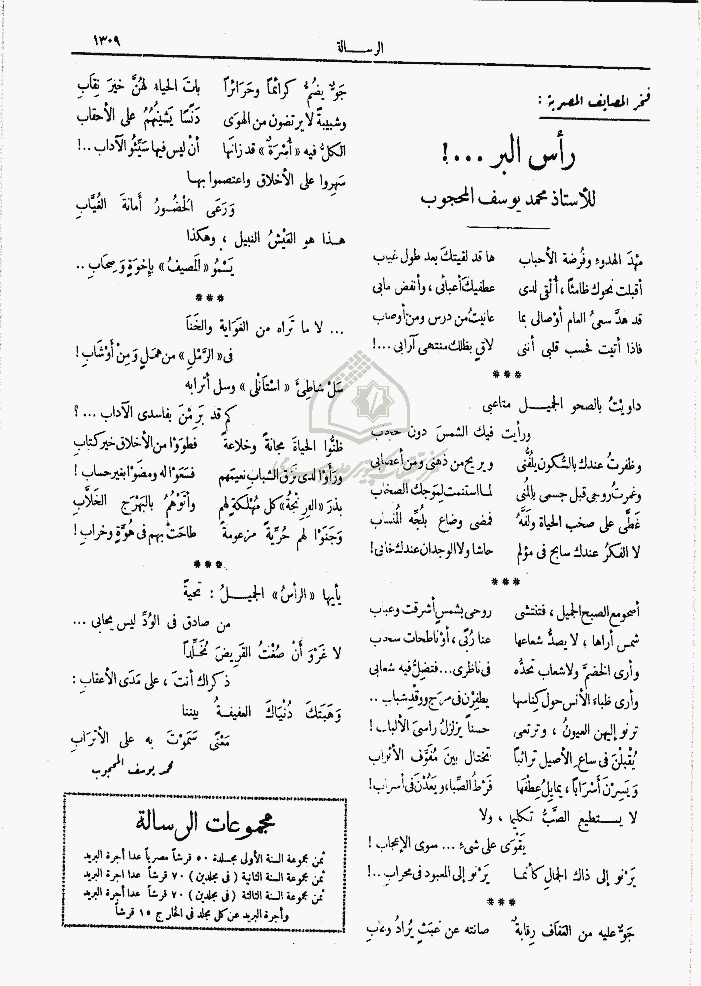 ١٣٠٩
الرسالة
فخر المصايف المصرية :
رأس البر ...!
للأستاذ محمد يوسف المحجوب
مهدَ الهدوءِ وفُرضةَ الأحباب ها قد لقيتك بعد طول غياب
أقبلت نحوك ظامئاً، أُلقى لدى عطفيك أعبائى، وأنفض مابى
قد هدَّ سعىُ العام أوْصالى بما عانيتُ من درس ومن أوصاب
فاذا أتيت فحسب قلبى أننى لاقٍ بظلك منتهى آرابى ...!
***
داويْتُ بالصحو الجميـل متاعبى
ورأيت فيك الشمس دون حجاب
وظفرت عندك بالسُّكون يلفُّنى ويريح من ذهنى ومن أعصابى
وغمرتُ روحى قبل جسمى بالمُنى لما استنمت لِمَوجك الصخَّاب
غَطَّى على صخب الحياة ولَفَّهُ فمضى وضاع بلُجِّه المُنْساب
لا الفكرُ عندك سابح فى مؤلم حاشا ولا الوجدان عندك خابى!
***
أصحو مع الصبح الجميل، فتنتشى روحى بشمسٍ أشرقت وعباب
شمس أراها، لا يصدُّ شعاعها عنا رُبًى، أوْ ناطحات سحاب
وأرى الخضم ولا شعاب تحدُّه فى ناظرى ... فتضلُّ فيه شعابى
وأرى ظباءَ الأنس حول كناسها يطفِرْن فى مرَح ووقْدِ شباب ..
ترنو إليهن العيونُ، وترتمى حسناً يزلزل راسىَ الألباب!
يُقْبلْنَ فى ساعِ الأصيل ترائباً تختال بينَ مُفَوَّف الأثواب
وَيَسِرْن أسْراباً، يمايلُ عِطْفَها فَرْطُ الصِّبا، ويَعُدْنَ فى أسراب!
لا يستطيع الصَّبُّ تكليما، ولا
يَقْوَى على شىءٍ ... سوى الإعجاب!
يَرْنو إلى ذاك الجمال كأنما يَرْنو إلى المعبود فى محراب ..!
***
جَوٌّ عليه من العَفَاف رِقابةٌ صانته عن عَبَثٍ يُرَادُ وعاب
جَوٌّ يضُمُّ كرائماً وحَرَائراً بات الحياءُ لهُنَّ خيرَ نِقاب
وشبيبةً لا يرتضون من الهوى دَنَساً يَشينُهُمُ على الأحقاب
الكلُّ فيه «أُسْرةٌ» قد زانها أنْ ليس فيها سَيِّئُو الآداب ..!
سهروا على الأخلاق واعتصموا بهـا
وَرَعَى الحُضُورُ أمانةَ الغُيَّاب
هـذا هو العَيْشُ النبيل، وهكذا
يَسْمُو «المَصيفُ» بإخوَةٍ وَصِحَاب ..
***
... لا ما تَراه من الغَوَاية والخَنا
فى «الرَّمْلِ» من هَمَلٍ وَمِنْ أوْشَاب!
سَلْ شاطئَ «استَانْلى» وسل أترابه
كم قد بَرِمْنَ بفاسدى الآداب ...؟
ظنُّوا الحياةَ مجانةً وخلاعةً فطوَوْا من الأخلاق خيرَ كتاب
ورأوْا لدى نَزَق الشباب نعيمَهم فسَعَوْا له ومضَوْا بغير حساب!
بذرَ «الفِرِنْجَةُ» كل مُهْلكةٍ لهم وأتَوْهُمُ بالبَهْرَج الخلَّاب
وَجَنَوْا لهم حُرِّيَّةً مزعومةً طاحَتْ بهم فى هُوَّةٍ وخراب!
***
يأيها «الرأسُ» الجميـلُ : تحيةً
من صادق فى الوُدِّ ليس يحابى ...
لا غَرْوَ أَنْ صُغْتُ القَريضَ مُخَلِّداً
ذكراك أنتَ، على مَدَى الأعقاب :
وَهَبَتْكَ دُنْيَاكَ العفيفةُ بيننا
مَعْنًى سَمَوْتَ به على الأترَاب
محمد يوسف المحجوب
مجموعات الرسالة
ثمن مجموعة السنة الأولى مجلدة ٥٠ قرشاً مصرياً عدا أجرة البريد
ثمن مجموعة السنة الثانية (فى مجلدين) ٧٠ قرشاً عدا أجرة البريد
ثمن مجموعة السنة الثالثة (فى مجلدين) ٧٠ قرشاً عدا أجرة البريد
وأجرة البريد عن كل مجلد فى الخارج ١٥ قرشاً